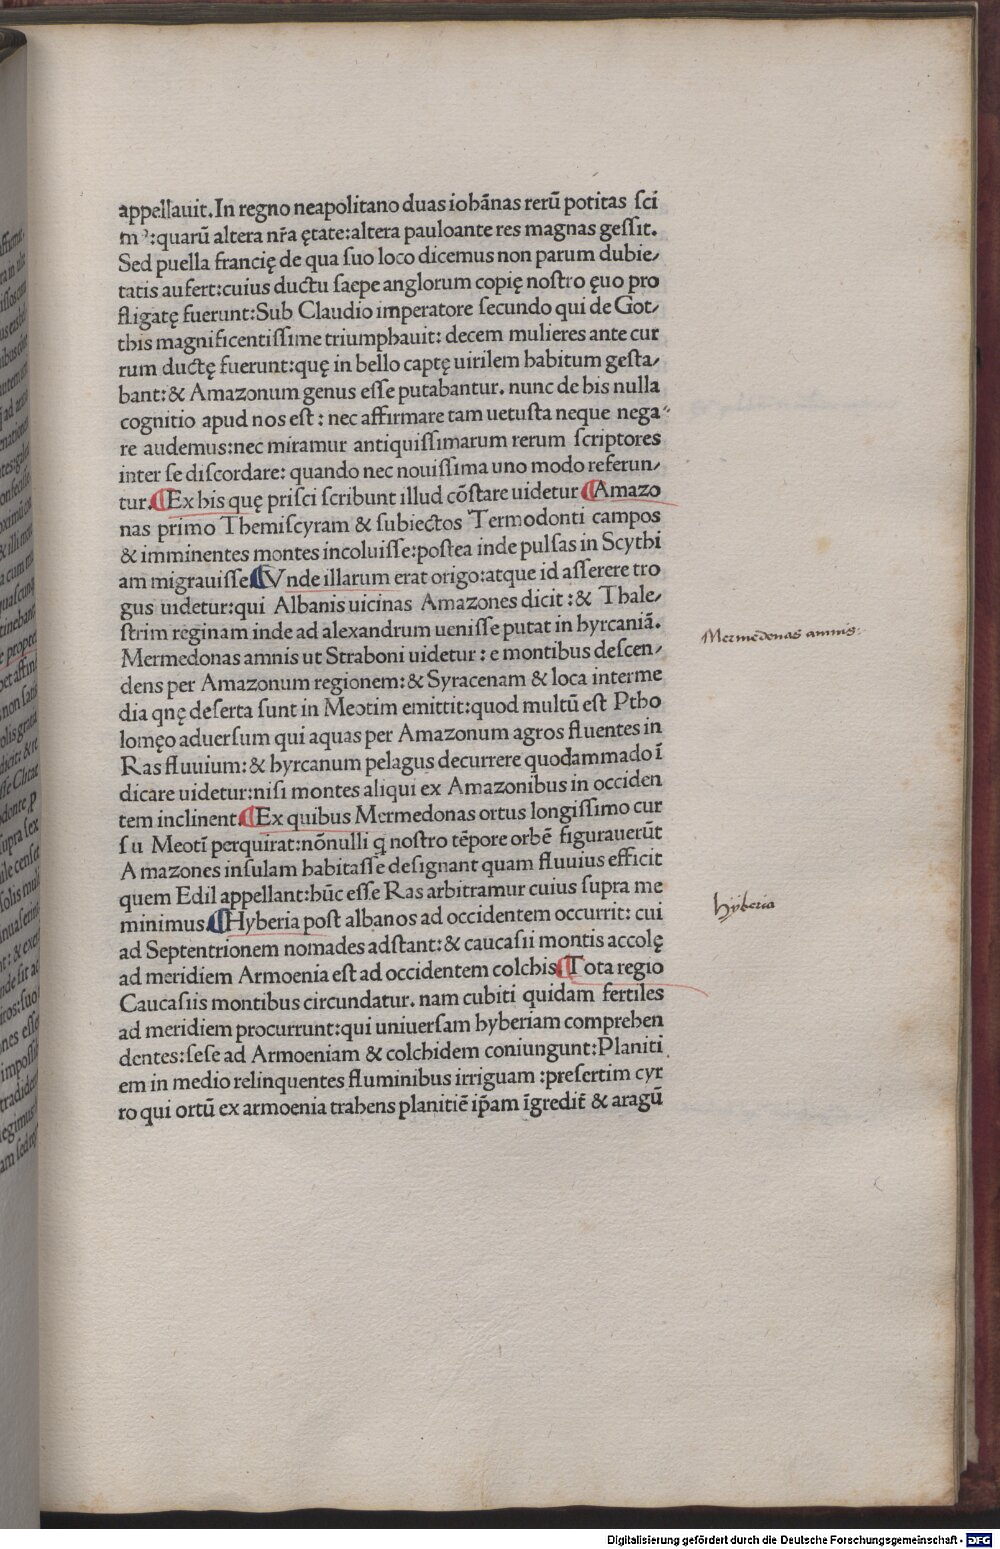 appellauit. In regno neapolitano duas iohānas rerū potitas sci
mꝰ: quarū altera nr̄a ętate: altera pauloante res magnas gessit.
Sed puella francię de qua suo loco dicemus non parum dubie⸗
tatis aufert: cuius ductu saepe anglorum copię nostro ęuo pro
fligatę fuerunt: Sub Claudio imperatore secundo qui de Got⸗
this magnificentissime triumphauit: decem mulieres ante cur
rum ductę fuerunt: quę in bello captę uirilem habitum gesta⸗
bant: & Amazonum genus esse putabantur. nunc de his nulla
cognitio apud nos est: nec affirmare tam uetusta neque nega⸗
re audemus: nec miramur antiquissimarum rerum scriptores
inter se discordare: quando nec nouissima uno modo referun⸗
tur. ¶Ex his quę prisci scribunt illud cōstare uidetur ¶Amazo
nas primo Themiscyram & subiectos Termodonti campos
& imminentes montes incoluisse: postea inde pulsas in Scythi
am migrauisse. ¶Vnde illarum erat origo: atque id asserere tro
gus uidetur: qui Albanis uicinas Amazones dicit: & Thale⸗
strim reginam inde ad alexandrum uenisse putat in hyrcaniā.
Mermedonas amnis ut Straboni uidetur: e montibus descen⸗
dens per Amazonum regionem: & Syracenam & loca interme
dia qnę deserta sunt in Meotim emittit: quod multū est Ptho
lomęo aduersum qui aquas per Amazonum agros fluentes in
Ras fluuium: & hyrcanum pelagus decurrere quodammado ī
dicare uidetur: nisi montes aliqui ex Amazonibus in occiden
tem inclinent. ¶Ex quibus Mermedonas ortus longissimo cur
su Meotī perquirat: nōnulli q̄ nostro tēpore orbē figurauerūt
Amazones insulam habitasse designant quam fluuius efficit
quem Edil appellant: hūc esse Ras arbitramur cuius supra me
minimus. ¶Hyberia post albanos ad occidentem occurrit: cui
ad Septentrionem nomades adstant: & caucasii montis accolę
ad meridiem Armoenia est ad occidentem colchis. ¶Tota regio
Caucasiis montibus circundatur. nam cubiti quidam fertiles
ad meridiem procurrunt: qui uniuersam hyberiam comprehen
dentes: sese ad Armoeniam & colchidem coniungunt: Planiti
em in medio relinquentes fluminibus irriguam: presertim cyr
ro qui ortū ex armoenia trahens planitiē ip̄am īgredit̄ & aragū
Mermedonas amnis.
hÿberia
Digitalisierung gefördert durch die Deutsche Forschungsgemeinschaft - DFG